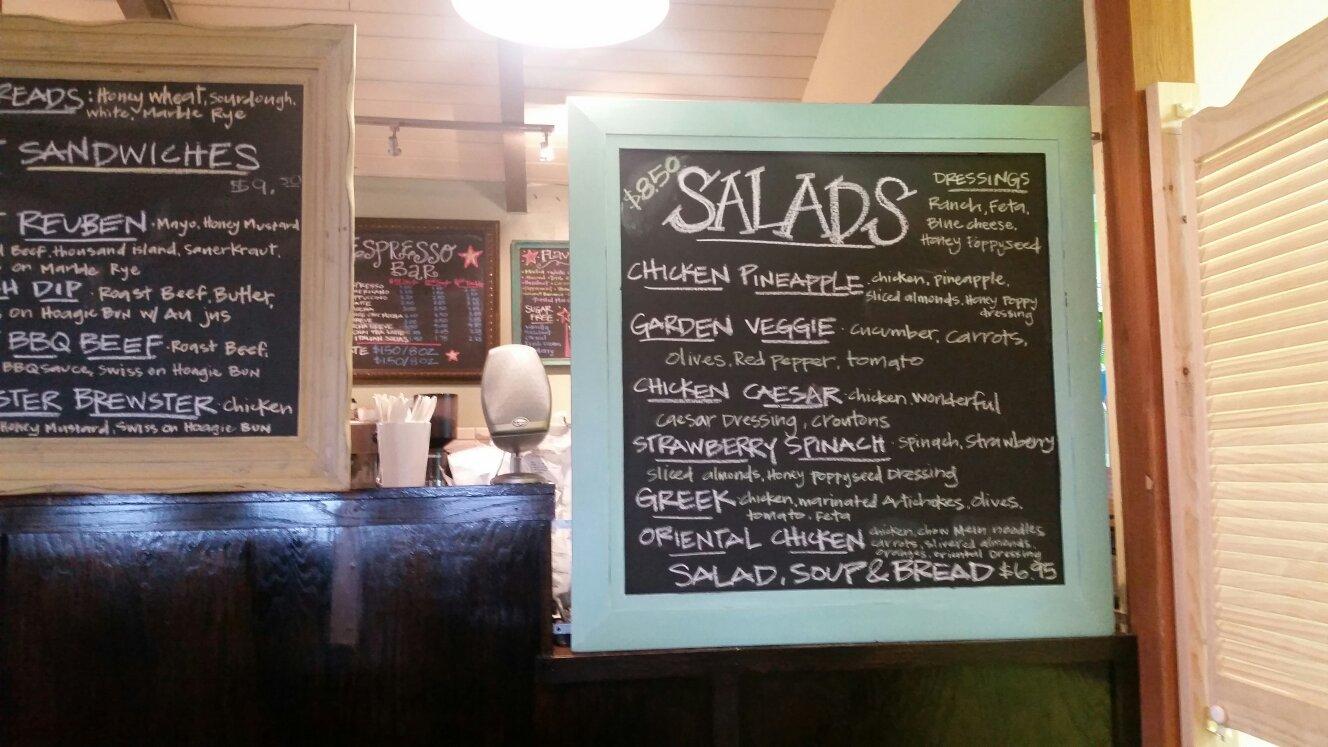 READS: Honey wheat, Sourdough,
white, Marble Rye
SANDWICHES
$9.
REUBEN · Mayo, Honey Mustard
Beef, thousand Island, Sauerkraut,
on Marble Rye
H DIP · Roast Beef, Butter,
on Hoagie Bun w/ Au jus
BBQ BEEF · Roast Beef,
BBQ sauce, Swiss on Hoagie Bun
STER BREWSTER · chicken
Honey Mustard, Swiss on Hoagie Bun
ESPRESSO
BAR
$1.50/8oz
$1.50/8oz
FLAV
SUGAR
FREE
$8.50
SALADS
DRESSINGS
Ranch, Feta,
Blue cheese,
Honey Poppyseed
CHICKEN PINEAPPLE · chicken, pineapple,
sliced almonds, Honey Poppy
dressing
GARDEN VEGGIE · cucumber, carrots,
olives, Red Pepper, tomato
CHICKEN CAESAR · chicken, wonderful
Caesar Dressing, croutons
STRAWBERRY SPINACH · spinach, Strawberry
sliced almonds, Honey Poppyseed Dressing
GREEK · chicken, marinated Artichokes, olives,
tomato, Feta
ORIENTAL CHICKEN chicken, chow Mein noodles
carrots, slivered almonds,
oranges, oriental Dressing
SALAD, SOUP & BREAD $6.95